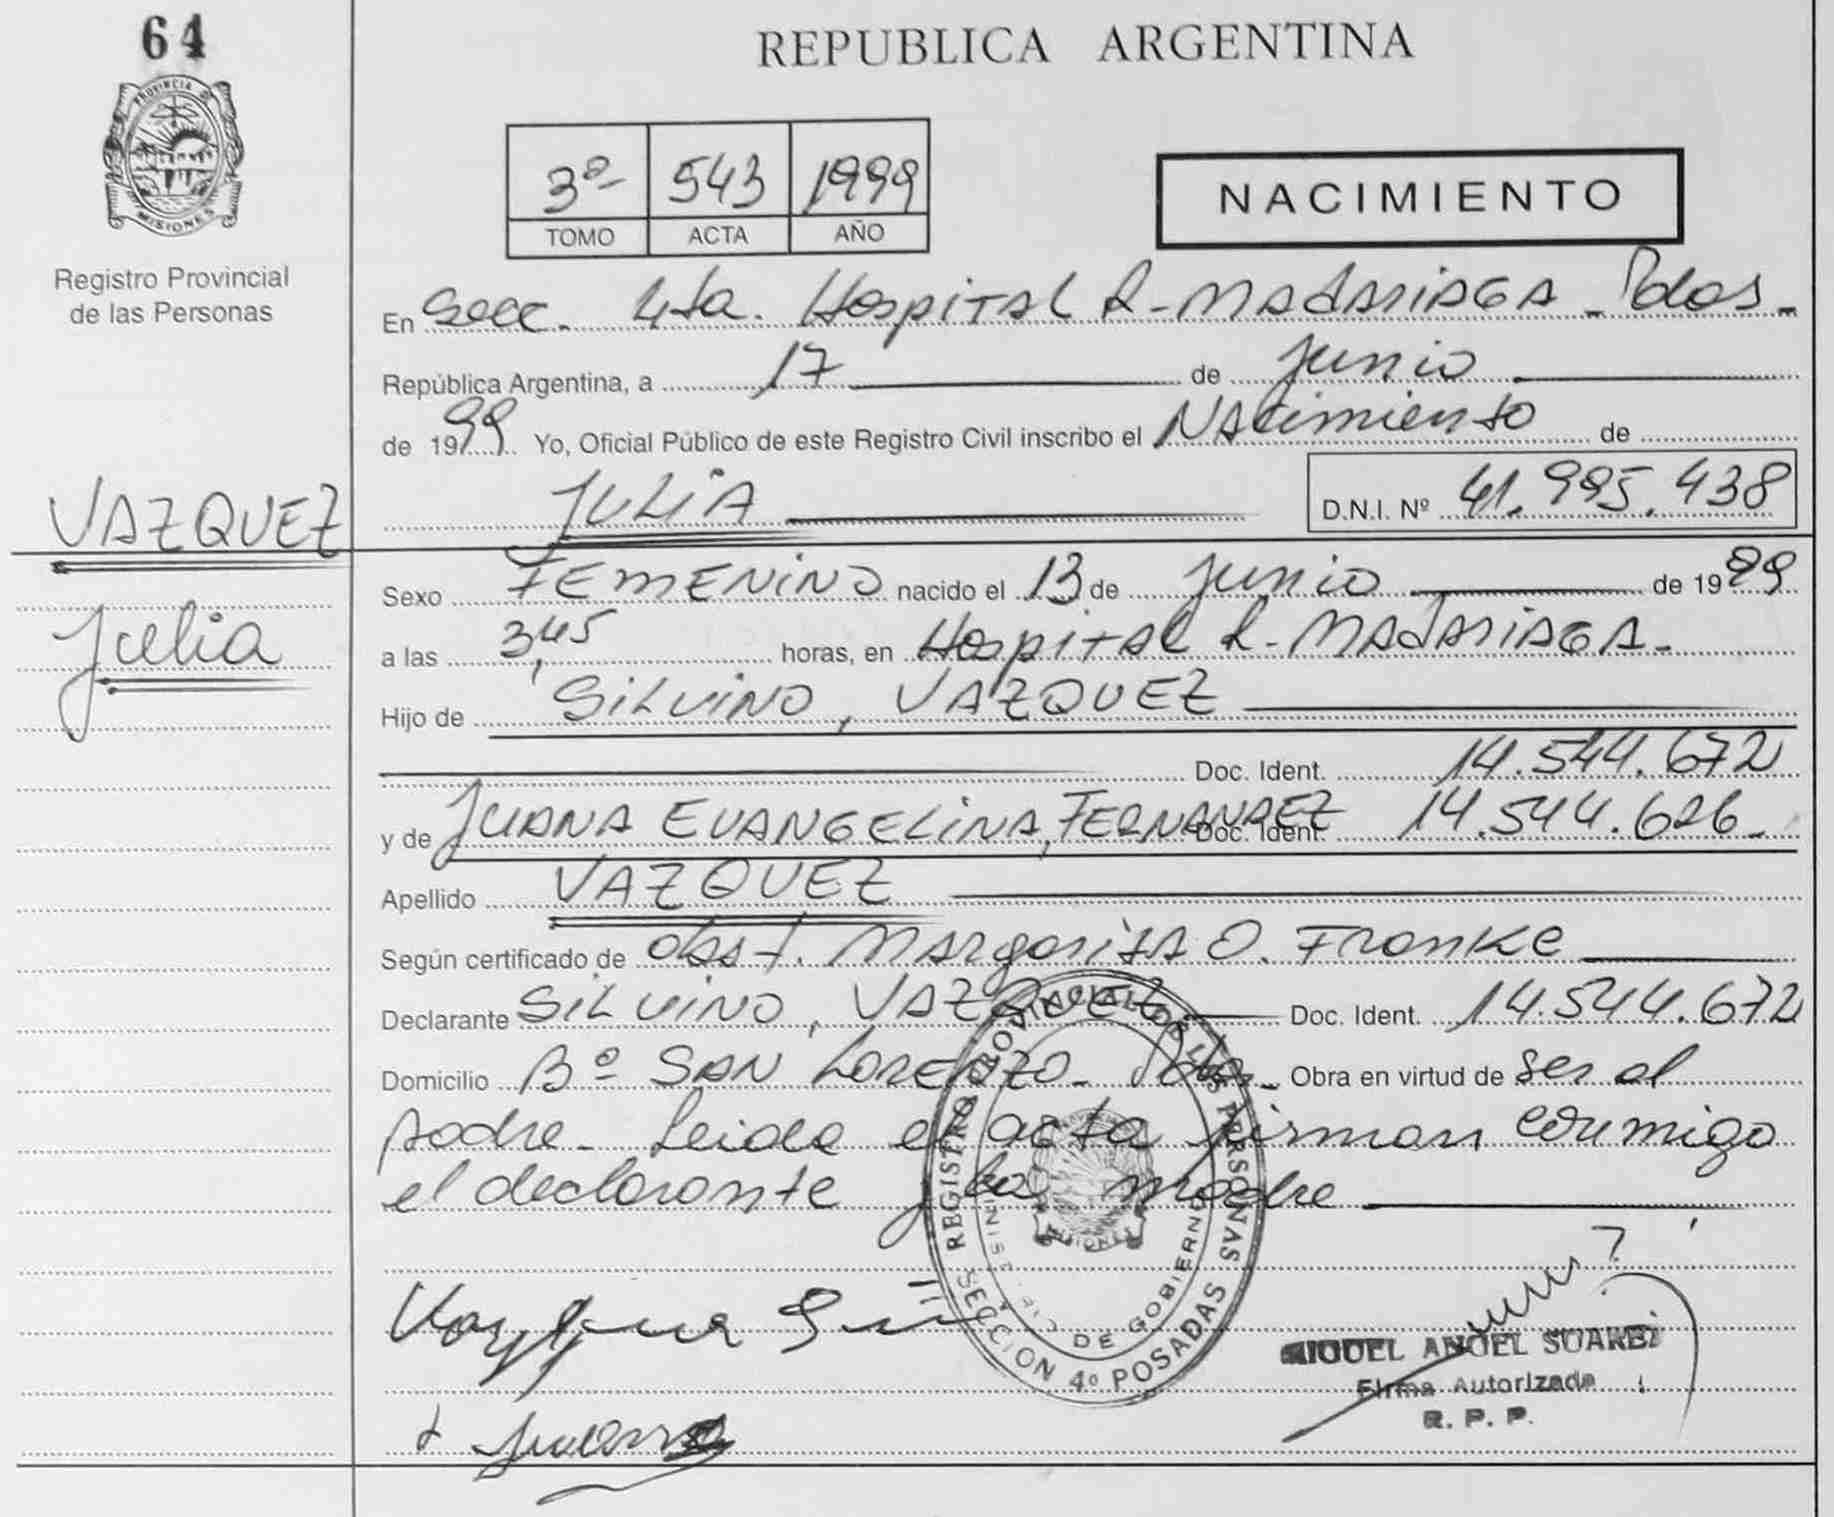 64
REPUBLICA ARGENTINA
PROVINCIA DE
MISIONES
Registro Provincial
de las Personas
3º 543 1999
TOMO ACTA AÑO
NACIMIENTO
En Secc. 4ta. Hospital R. Madariaga - Pdas.
República Argentina, a 17 de Junio
de 1999 Yo, Oficial Público de este Registro Civil inscribo el Nacimiento de
VAZQUEZ
Julia
JULIA D.N.I. Nº 41.995.438
Sexo FEMENINO nacido el 13 de Junio de 1999
a las 3,45 horas, en Hospital R. Madariaga.
Hijo de SILVINO, VAZQUEZ
Doc. Ident. 14.544.672
y de JUANA EVANGELINA, FERNANDEZ Doc. Ident. 14.544.626
Apellido VAZQUEZ
Según certificado de Obst. Margarita O. Franke
Declarante SILVINO, VAZQUEZ Doc. Ident. 14.544.672
Domicilio Bº SAN LORENZO - Pdas. Obra en virtud de ser el
padre - Leida el acta firman conmigo
el declarante y la madre
REGISTRO PROVINCIAL DE LAS PERSONAS
MINISTERIO DE GOBIERNO
MISIONES
SECCION 4º POSADAS
MIGUEL ANGEL SUAREZ
Firma Autorizada
R. P. P.